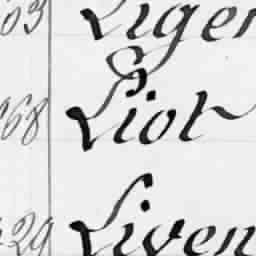 03 Liger
68 Liot
29 Liven